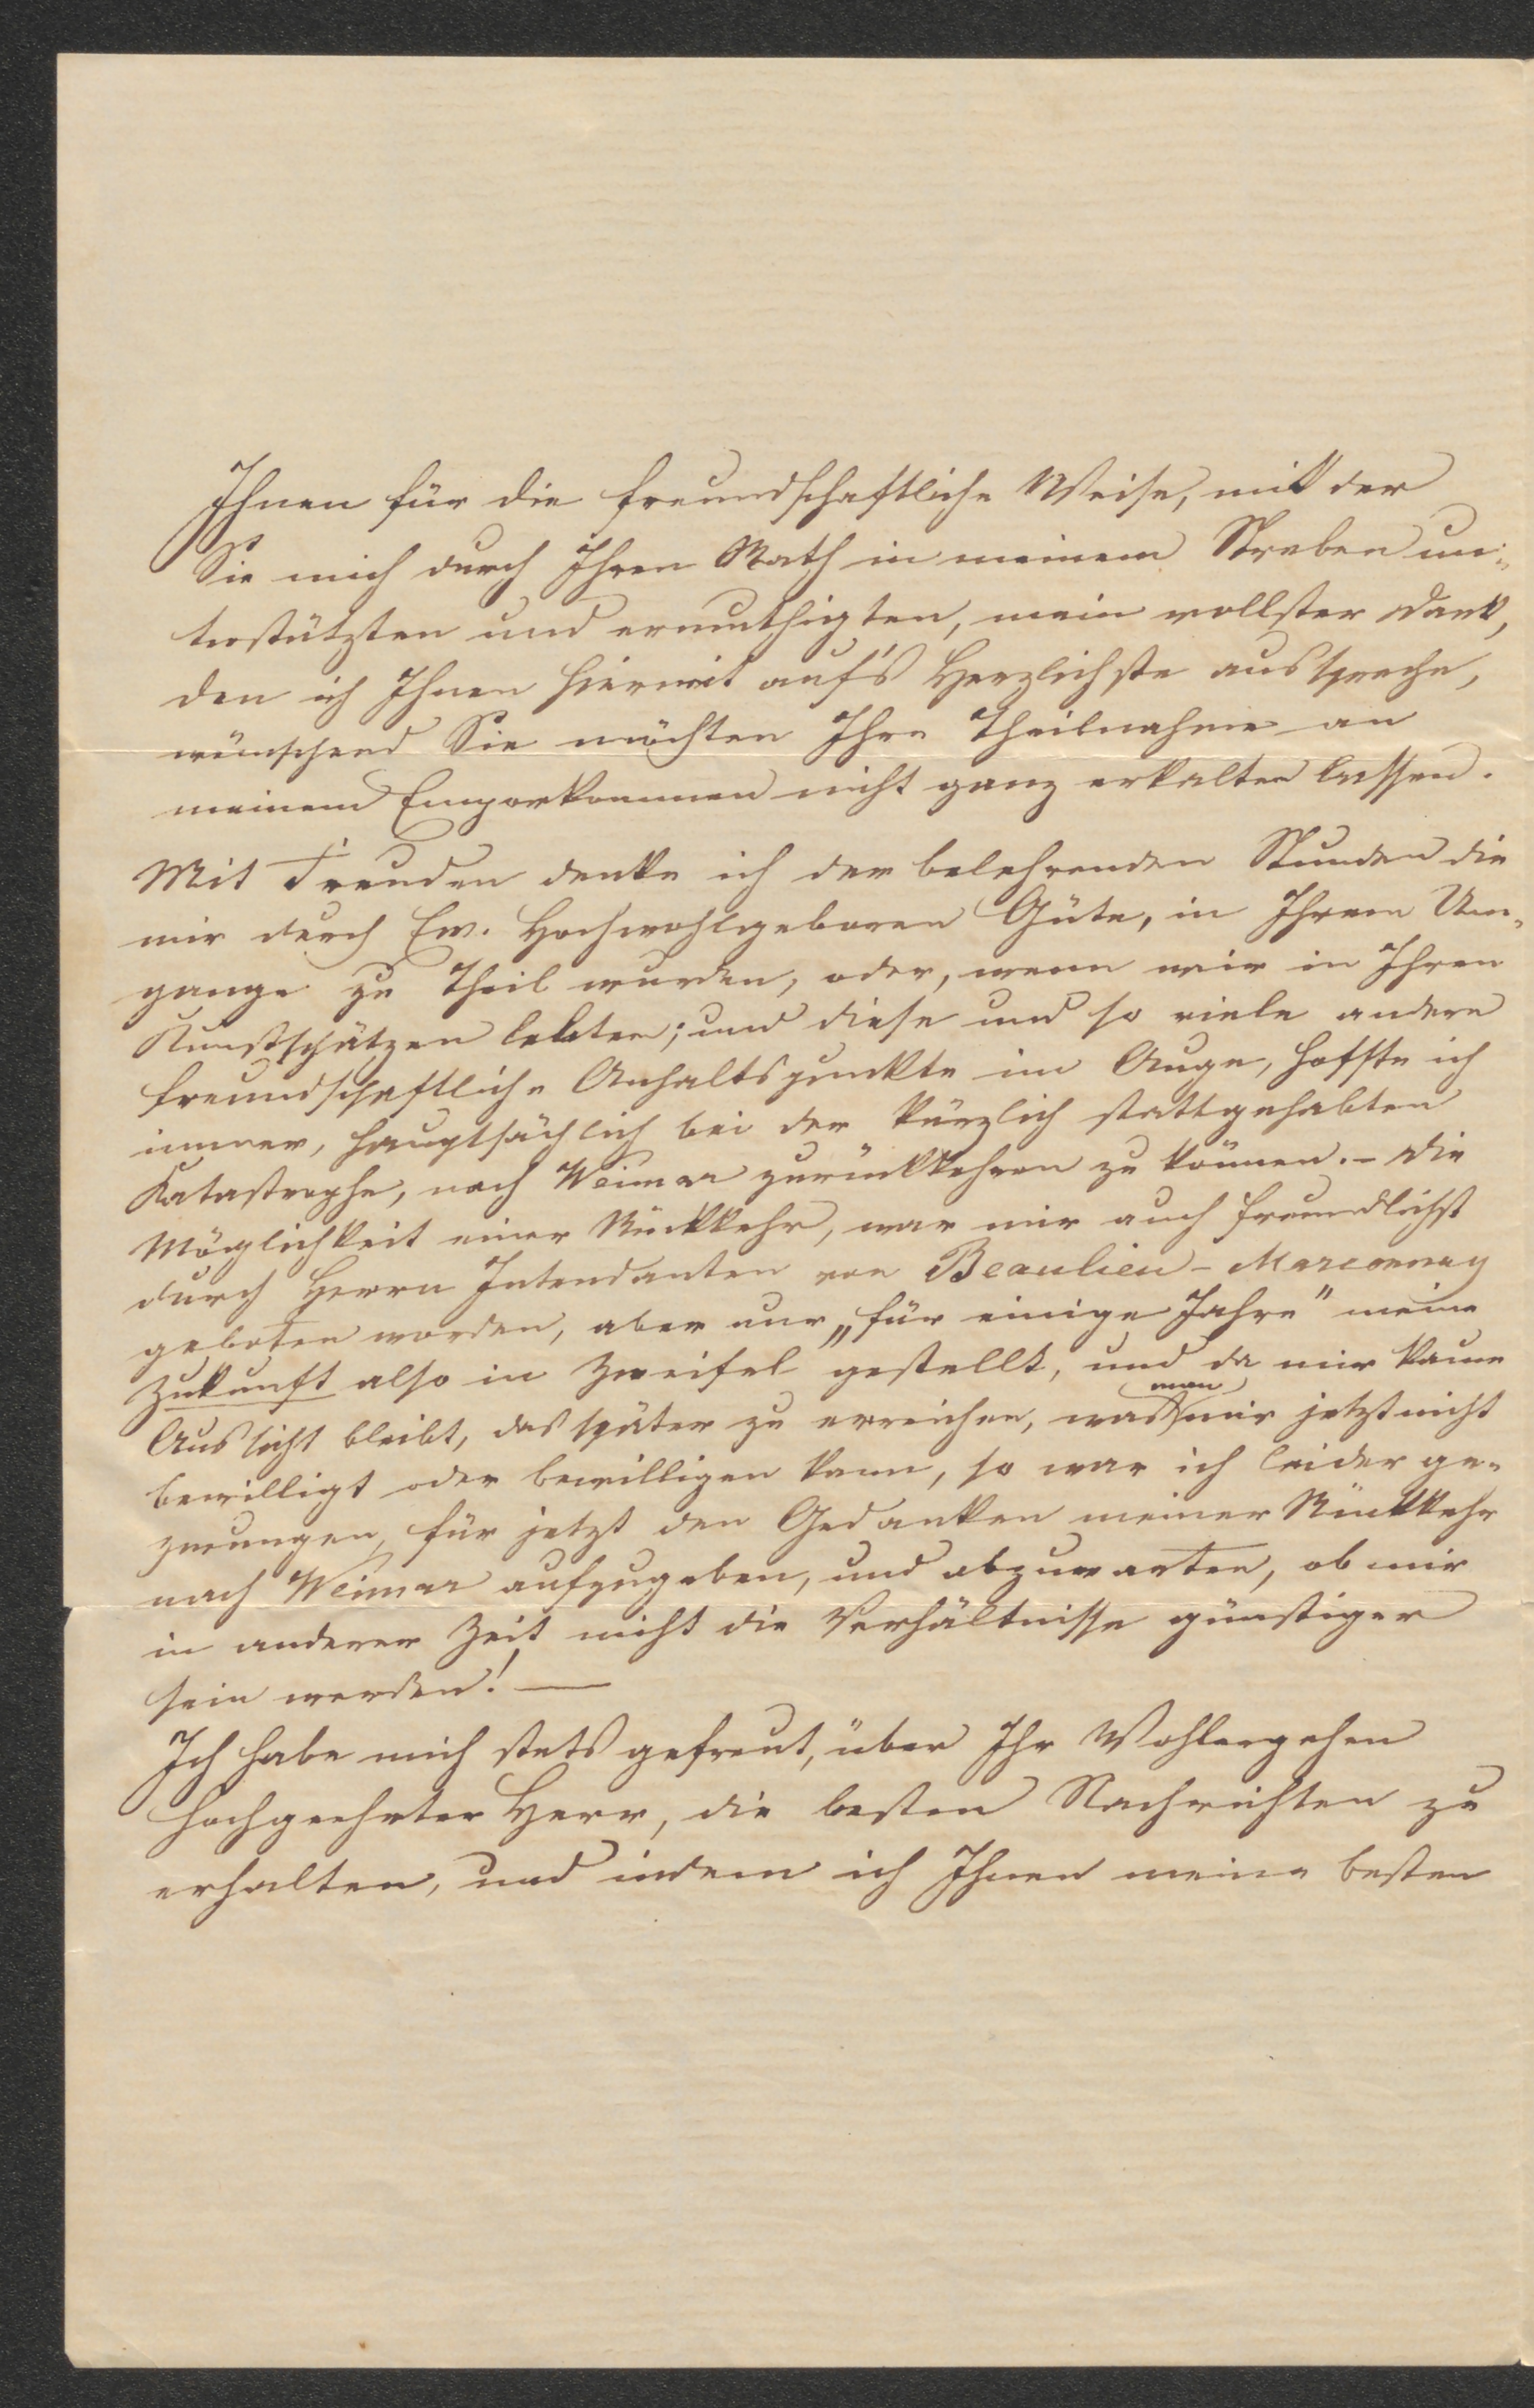 Ihnen für die freundschaftliche Weise, mit der
Sie mich durch Ihren Rath in meinem Streben un-
terstützten und ermuthigten, mein vollster Dank,
den ich Ihnen hiermit auf's Herzlichste ausspreche,
wünschend Sie möchten Ihre Theilnahme an
meinem Emporkommen nicht ganz erkalten lassen.
Mit Freuden denke ich der belehrenden Stunden die
mir durch Ew. Hochwohlgeboren Güte, in Ihrem Um-
gange zu Theil wurden, oder, wenn wir in Ihren
Kunstschätzen lebten; und diese und so viele andere
freundschaftliche Anhaltspunkte im Auge, hoffte ich
immer, hauptsächlich bei der kürzlich stattgehabten
Katastrophe, nach Weimar zurückkehren zu können. – Die
Möglichkeit einer Rückkehr, war mir auch freundlichst
durch Herrn Intendanten von Beaulieu-Marconnay
geboten worden, aber nur „für einige Jahre" meine
Zukunft also in Zweifel gestellt, und da mir kaum
man
Aussicht bleibt, das später zu erreichen, was mir jetzt nicht
bewilligt oder bewilligen kann, so war ich leider ge-
zwungen, für jetzt den Gedanken meiner Rückkehr
nach Weimar aufzugeben, und abzuwarten, ob mir
in anderer Zeit nicht die Verhältnisse günstiger
sein werden! —
Ich habe mich stets gefreut, über Ihr Wohlergehen
hochgeehrter Herr, die besten Nachrichten zu
erhalten, und indem ich Ihnen meine besten